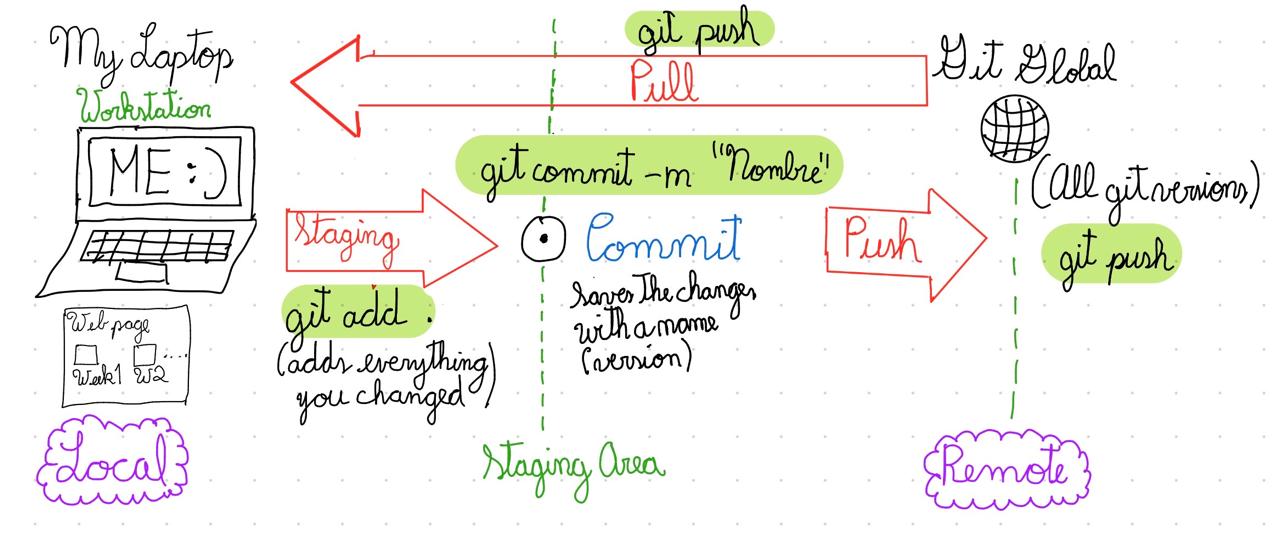 My Laptop
Workstation
ME :)
Web page
Week1 W2 ....
Local
git push
Pull
Staging
git add .
(adds everything
you changed)
git commit -m "Nombre"
Commit
saves the changes
with a name
(version)
Staging Area
Push
Git Global
(All git versions)
git push
Remote